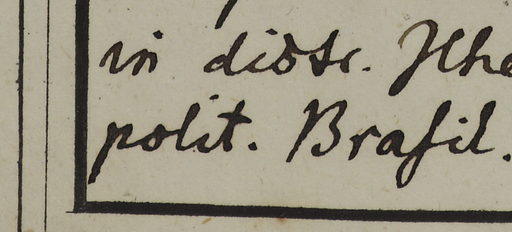 in distr. Jlhe
polit. Brasil.